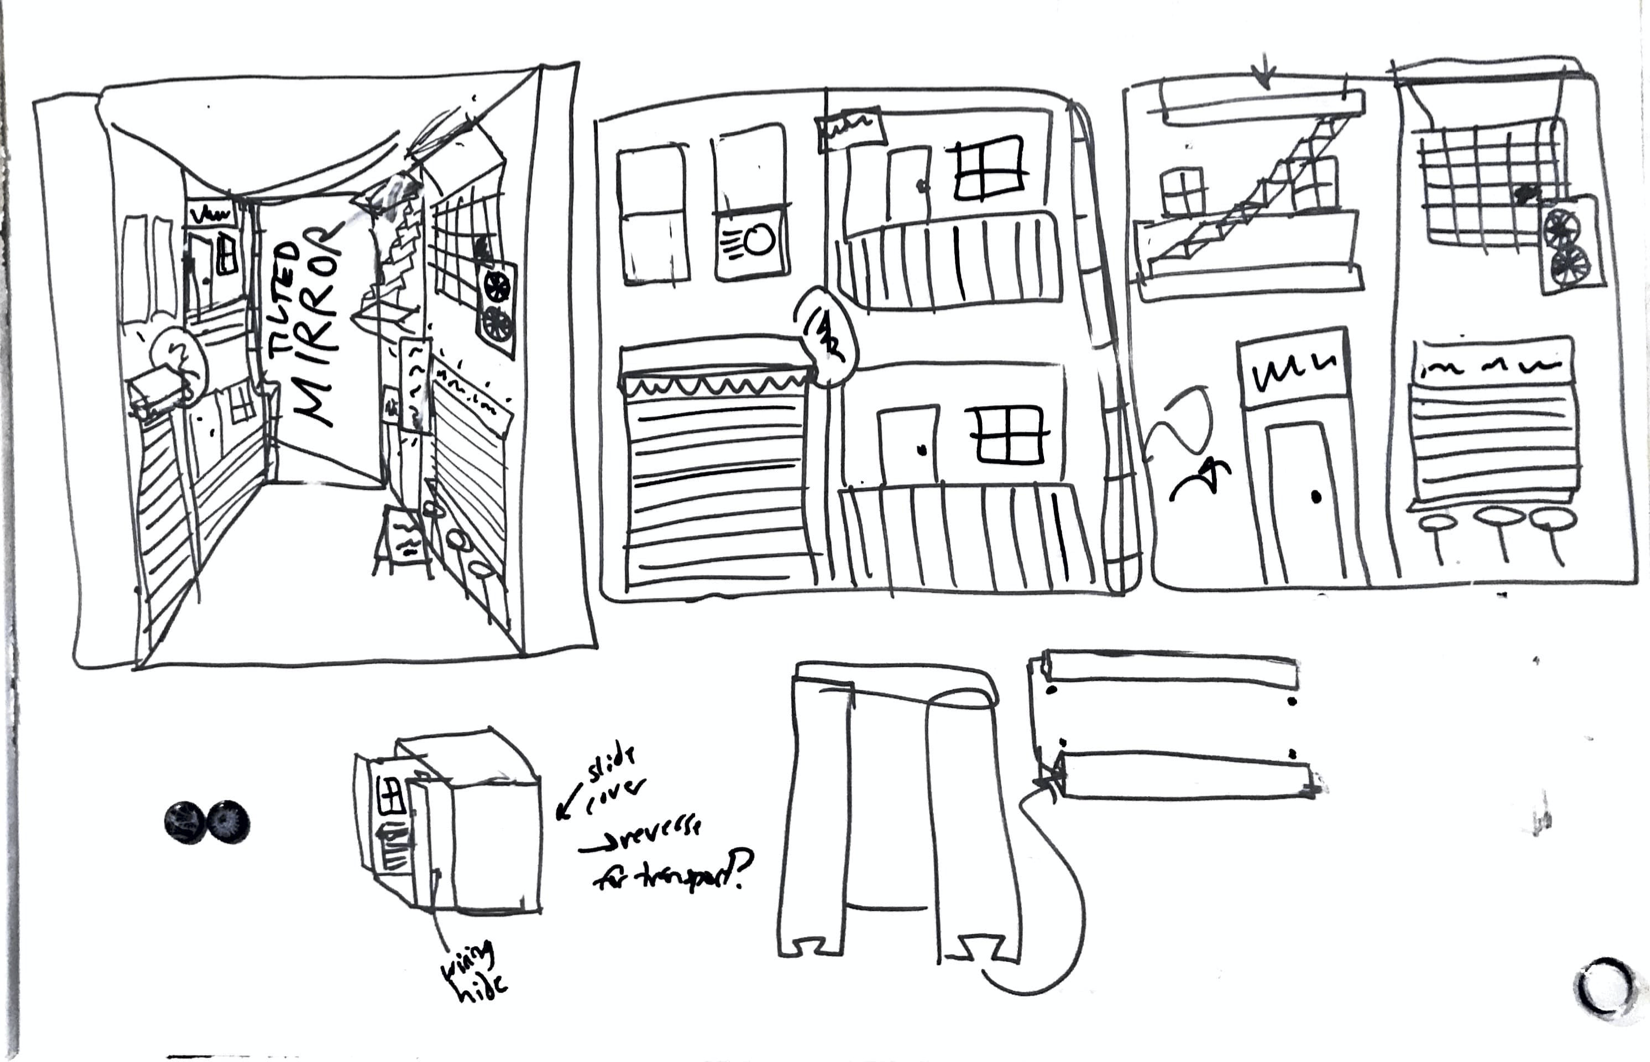 TILTED
MIRROR
slide
cover
→ reverse
for transport?
wiring
hide